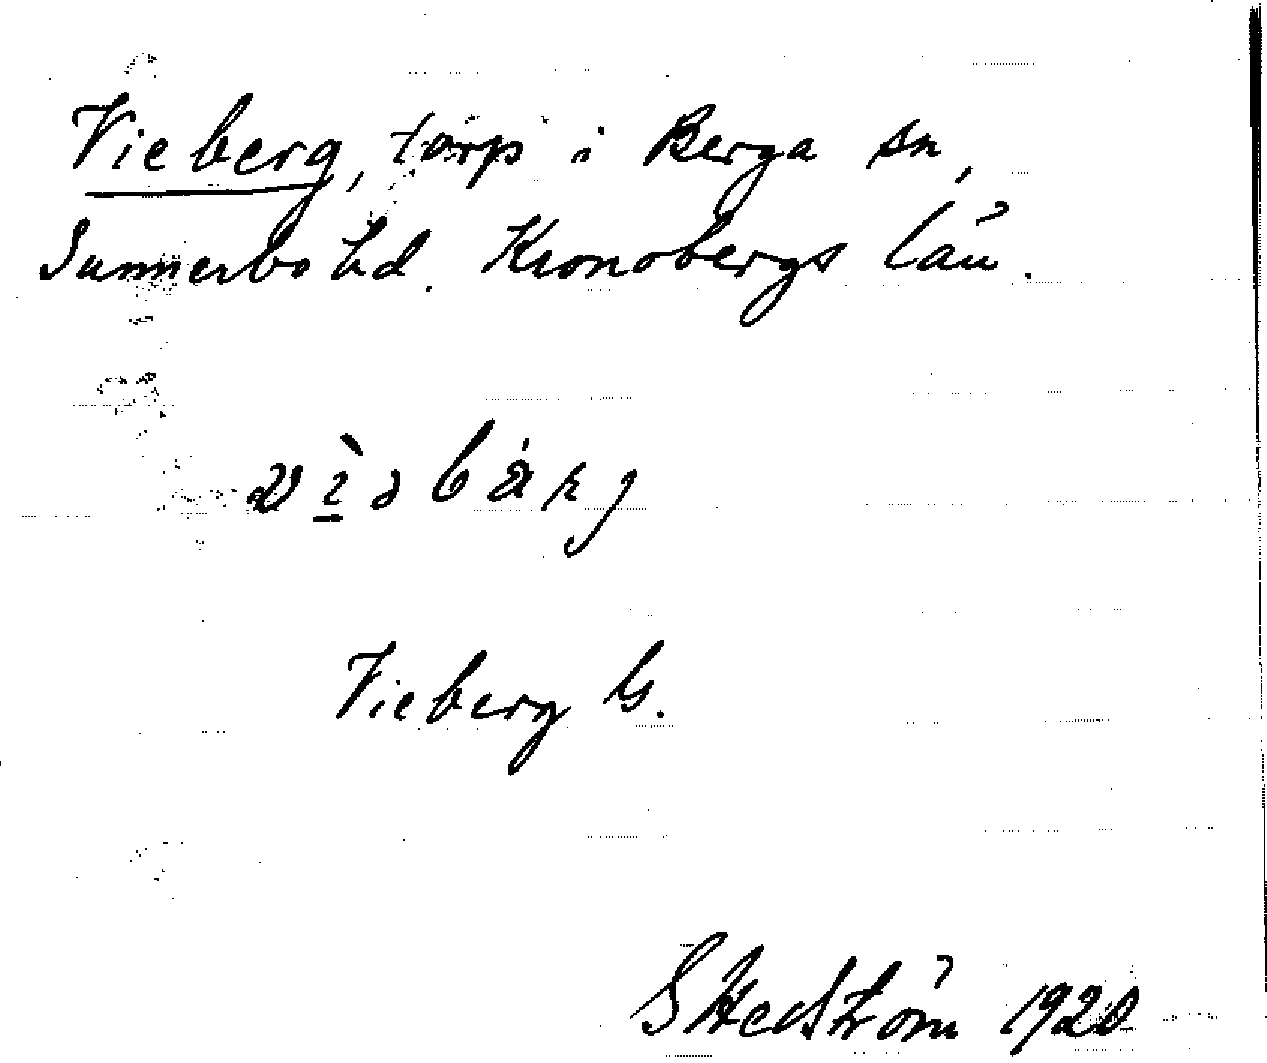 Vieberg, torp i Berga sn,
Sunnerbo hd. Kronobergs län.
Vieberg G.
S Hedström 1920